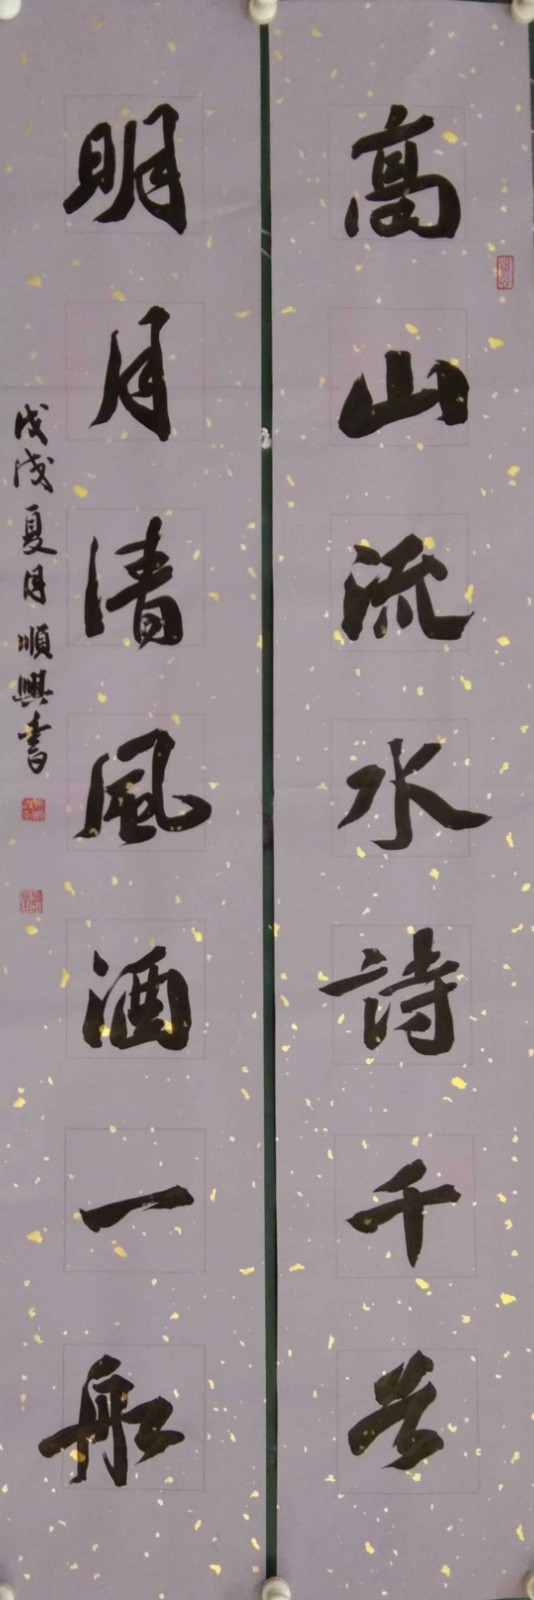 高山流水詩千首
明月清風酒一船
戊戌夏月順興書